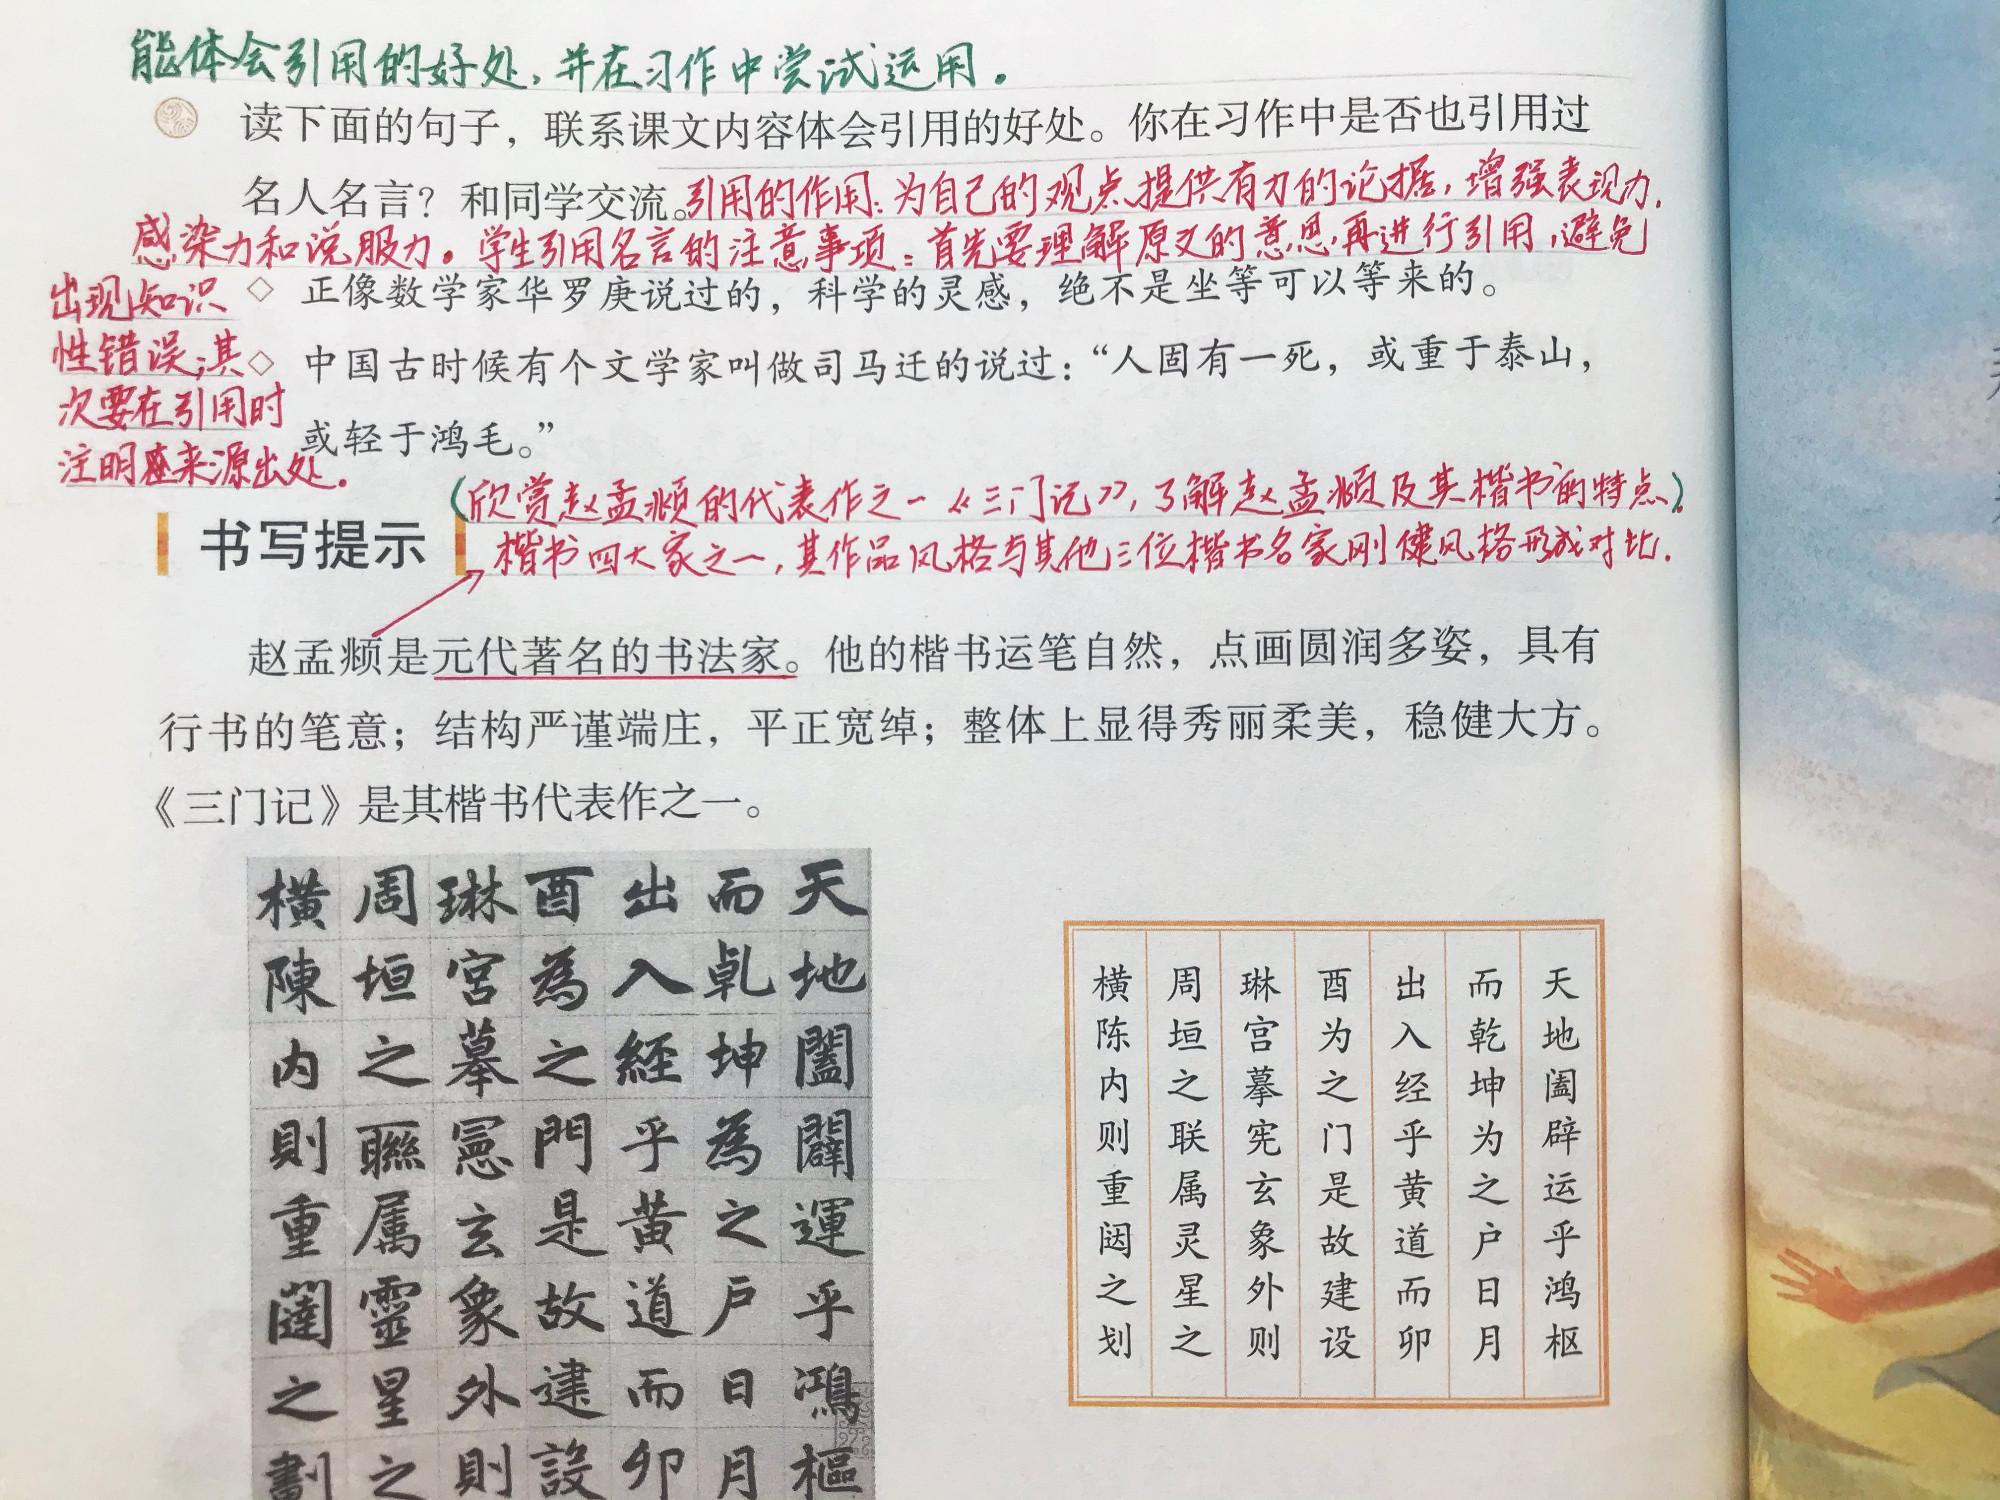 能体会引用的好处，并在习作中尝试运用。
读下面的句子，联系课文内容体会引用的好处。你在习作中是否也引用过
名人名言？和同学交流。
引用的作用：为自己的观点提供有力的论据，增强表现力，
感染力和说服力。学生引用名言的注意事项：首先要理解原文的意思，再进行引用，避免
出现知识
性错误；其
次要在引用时
注明来源出处。
正像数学家华罗庚说过的，科学的灵感，绝不是坐等可以等来的。
中国古时候有个文学家叫做司马迁的说过：“人固有一死，或重于泰山，
或轻于鸿毛。”
（欣赏赵孟頫的代表作之一《三门记》，了解赵孟頫及其楷书的特点）
书写提示
楷书四大家之一，其作品风格与其他三位楷书名家刚健风格形成对比。
赵孟頫是元代著名的书法家。他的楷书运笔自然，点画圆润多姿，具有
行书的笔意；结构严谨端庄，平正宽绰；整体上显得秀丽柔美，稳健大方。
《三门记》是其楷书代表作之一。
天地闔闢運乎鴻樞
而乹坤為之戶日月
出入經乎黄道而卯
酉為之門是故建設
琳宮摹憲玄象外則
周垣之聮属靈星之
橫陳内則重闥之劃
天地阖辟运乎鸿枢
而乾坤为之户日月
出入经乎黄道而卯
酉为之门是故建设
琳宫摹宪玄象外则
周垣之联属灵星之
横陈内则重闼之划